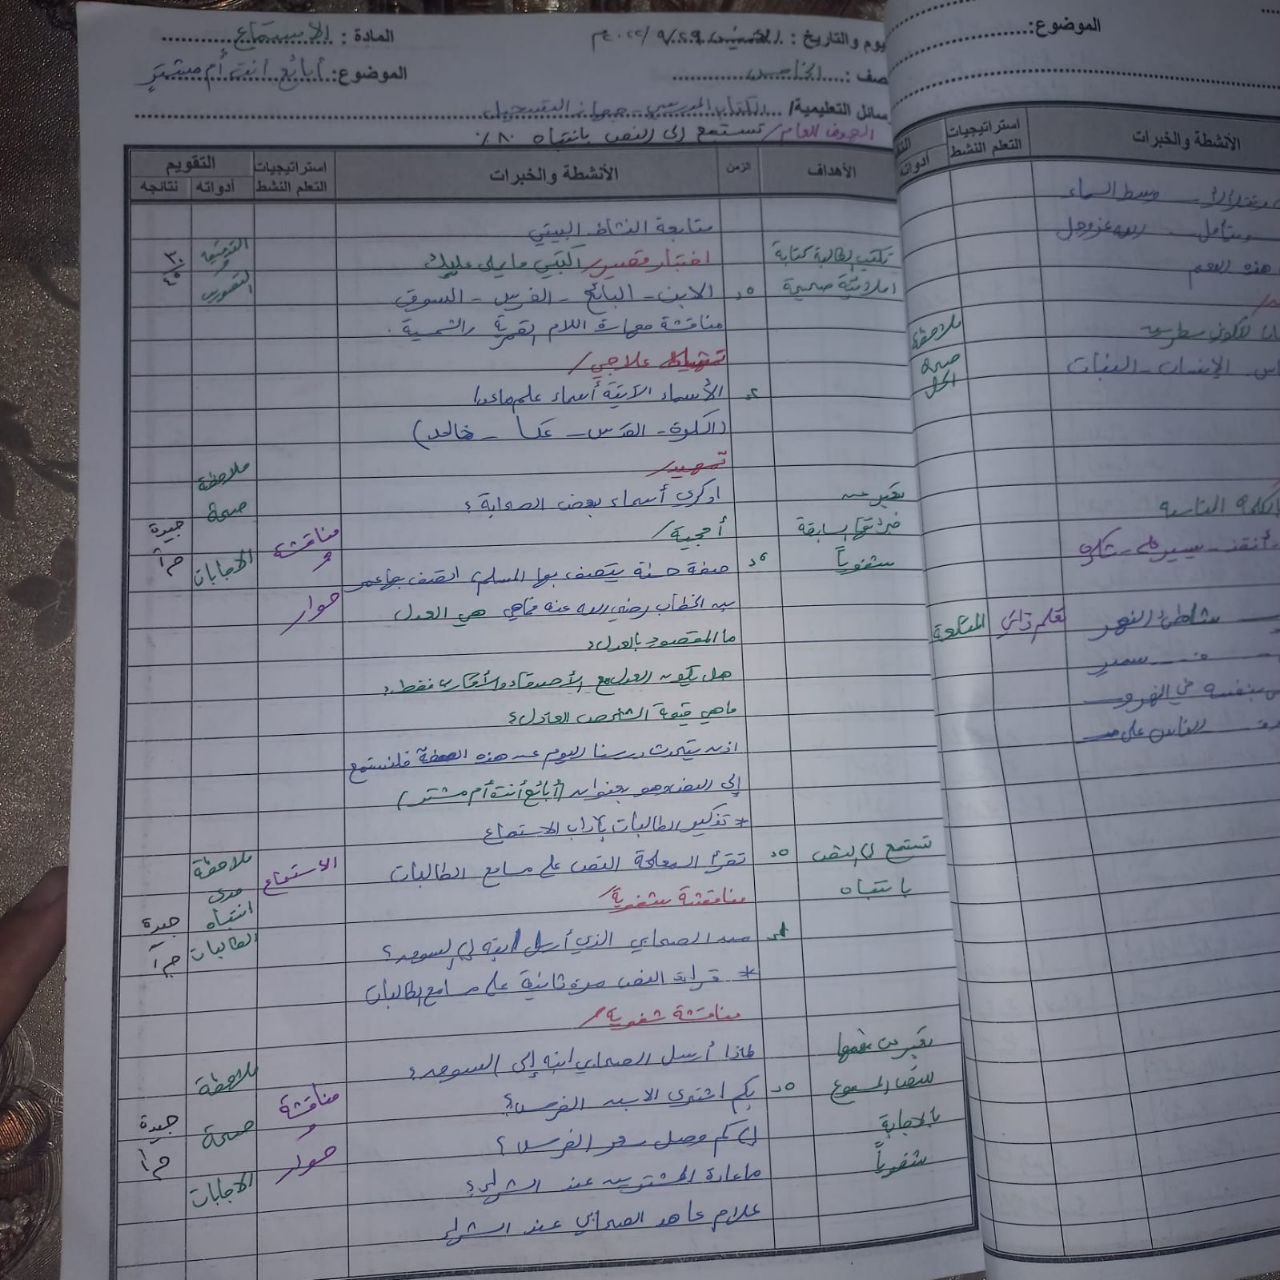 اليوم والتاريخ : الخميس ٢٩/٩/٢٠٢٢م
المادة : الاستماع
الصف : الخامس
الموضوع: أبائع أنت أم مشترٍ
الوسائل التعليمية/ الكتاب المدرسي - جهاز التسجيل
الهدف العام/ تستمع إلى النص بانتباه ٨٠٪
الأهداف
الزمن
الأنشطة والخبرات
استراتيجيات التعلم النشط
التقويم
أدواته
نتائجه
متابعة النشاط البيتي
تكتب الطالبة كتابة
اختبار قصير/ اكتبي ما يملى عليك
املائية صحيحة
٥د
الابن - البائع - الفرس - السوق
مناقشة مهارة اللام القمرية والشمسية.
نشاط علاجي/
الأسماء الآتية أسماء علم ماعدا
(الكرة - القدس - عكا - خالد)
تمهيد/
اذكري أسماء بعض الصحابة؟
تعبر عن
خبرتها السابقة
شفوياً
أحجية/
صفة حسنة يتصف بها المسلم اتصف بها عمر
بن الخطاب رضي الله عنه فما هي هي العدل
ما المقصود بالعدل؟
هل يكون العدل مع الأصدقاء والأقارب فقط؟
ما هي قيمة الشخص العادل؟
اذن يتحدث درسنا اليوم عن هذه الصفة فلنستمع
إلى النص وهو بعنوان (أبائع أنت أم مشتر)
* تذكير الطالبات بآداب الاستماع
تستمع إلى النص
بانتباه
٥د
تقرأ المعلمة النص على مسامع الطالبات
مناقشة شفوية/
من الصحابي الذي أرسل ابنه إلى السوق؟
* قراءة النص مرة ثانية على مسامع الطالبات
مناقشة شفوية/
تعبر عن فهمها
للنص المسموع
بالاجابة
شفوياً
لماذا أرسل الصحابي ابنه إلى السوق؟
٥د
بكم اشترى الابن الفرس؟
إلى كم وصل سعر الفرس؟
ما عادة المشترين عند الشراء؟
علام عاهد الصحابي عند الشراء
مناقشة
و
حوار
ملاحظة
صحة
الاجابات
جيدة
الاستماع
ملاحظة
مدى
انتباه
الطالبات
جيدة
مناقشة
و
حوار
ملاحظة
صحة
الاجابات
جيدة
الموضوع:
الأنشطة والخبرات
استراتيجيات التعلم النشط
أدواته
وسط السماء
هذه النعم
ملاحظة
صحة
الحل
الإنسان - النبات
شاطئ النهر
تعلم ذاتي
سمير